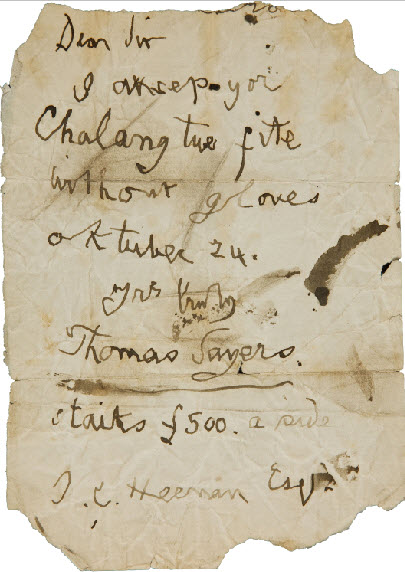 Dear Sir
I aksep yor
Chalang tue fite
without gloves
oktuber 24.
yrs truly
Thomas Sayers.
staiks £500. a side
J. C. Heenan Esqr